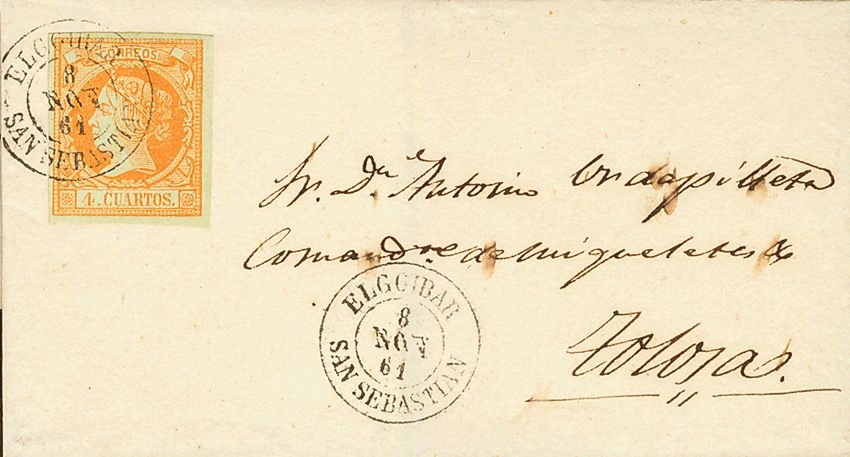 ELGOIBAR
8
NOV
61
SAN SEBASTIAN
CORREOS
4. CUARTOS.
Sr. Dn. Antonio Urdapilleta
Comandte. de miqueletes &
Tolosa.
ELGOIBAR
8
NOV
61
SAN SEBASTIAN